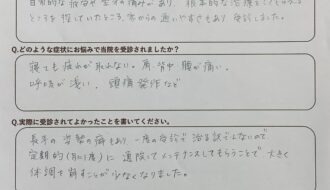 目白的な疲労や全身の痛みがあり 根本的な治療をしてもらう
ところを探していたところ、家からの通いやすさもあり受診しました。
Q.どのような症状にお悩みで当院を受診されましたか?
寝ても疲れが取れない。肩 背中 腰が痛い。
呼吸が浅い、頭痛発作など
Q.実際に受診されてよかったことを書いてください。
長年の姿勢の癖もあり 一度の受診で治る訳ではないので
定期的(月に1度)に通院してメンテナンスしてもらうことで大きく
体調を崩すことが少なくなりました。